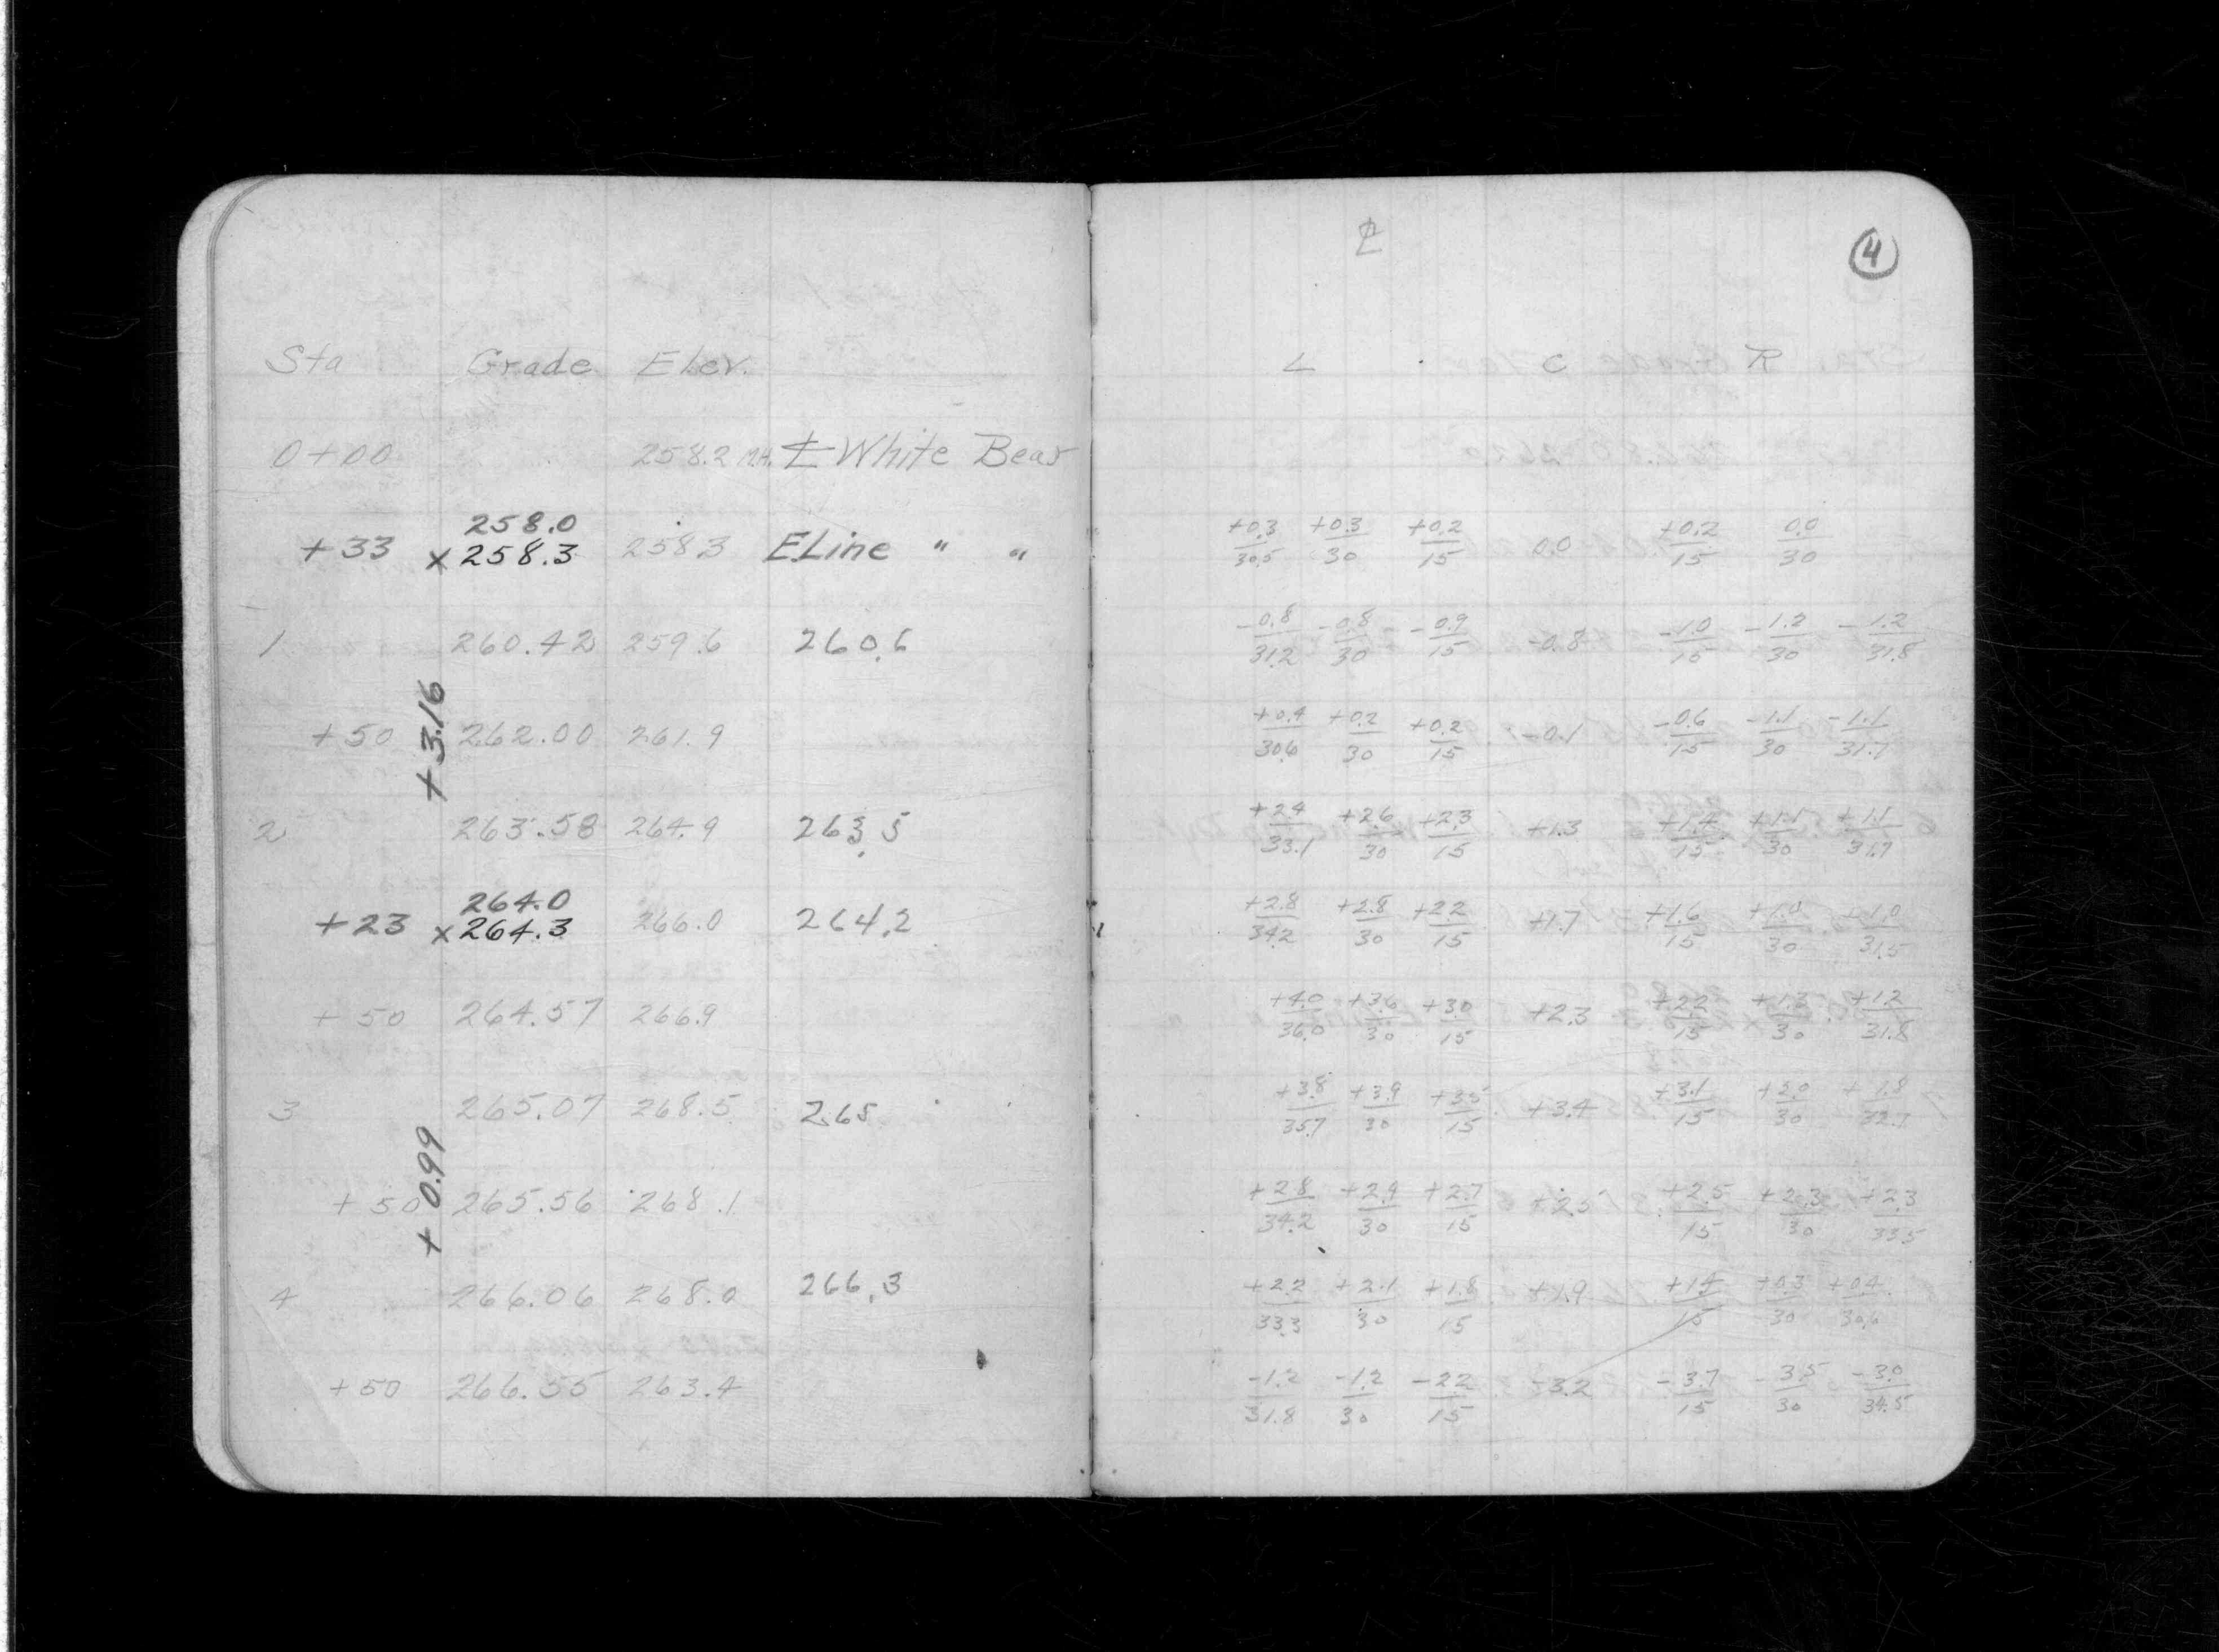 Sta Grade Elev.
0+00 258.2 M.H. ℄ White Bear
258.0
+33 x258.3 258.3 E Line " "
1 260.42 259.6 260.6
+50 262.00 261.9
+3.16
2 263.58 264.9 263.5
264.0
+23 x264.3 266.0 264.2
+50 264.57 266.9
3 265.07 268.5 265
+0.99
+50 265.56 268.1
4 266.06 268.0 266.3
+50 266.55 263.4
℄ 4
L C R
+0.3 +0.3 +0.2 0.0 +0.2 0.0
30.5 30 15 15 30
-0.8 -0.8 -0.9 -0.8 -1.0 -1.2 -1.2
31.2 30 15 15 30 31.8
+0.4 +0.2 +0.2 -0.1 -0.6 -1.1 -1.1
30.6 30 15 15 30 31.7
+2.4 +2.6 +2.3 +1.3 +1.4 +1.1 +1.1
33.1 30 15 15 30 31.7
+2.8 +2.8 +2.2 +1.7 +1.6 +1.0 +1.0
34.2 30 15 15 30 31.5
+4.0 +3.6 +3.0 +2.3 +2.2 +1.3 +1.2
36.0 30 15 15 30 31.8
+3.8 +3.9 +3.5 +3.4 +3.1 +2.0 +1.8
35.7 30 15 15 30 32.7
+2.8 +2.9 +2.7 +2.5 +2.5 +2.3 +2.3
34.2 30 15 15 30 33.5
+2.2 +2.1 +1.8 +1.9 +1.4 +0.3 +0.4
33.3 30 15 15 30 30.6
-1.2 -1.2 -2.2 -3.2 -3.7 -3.5 -3.0
31.8 30 15 15 30 34.5